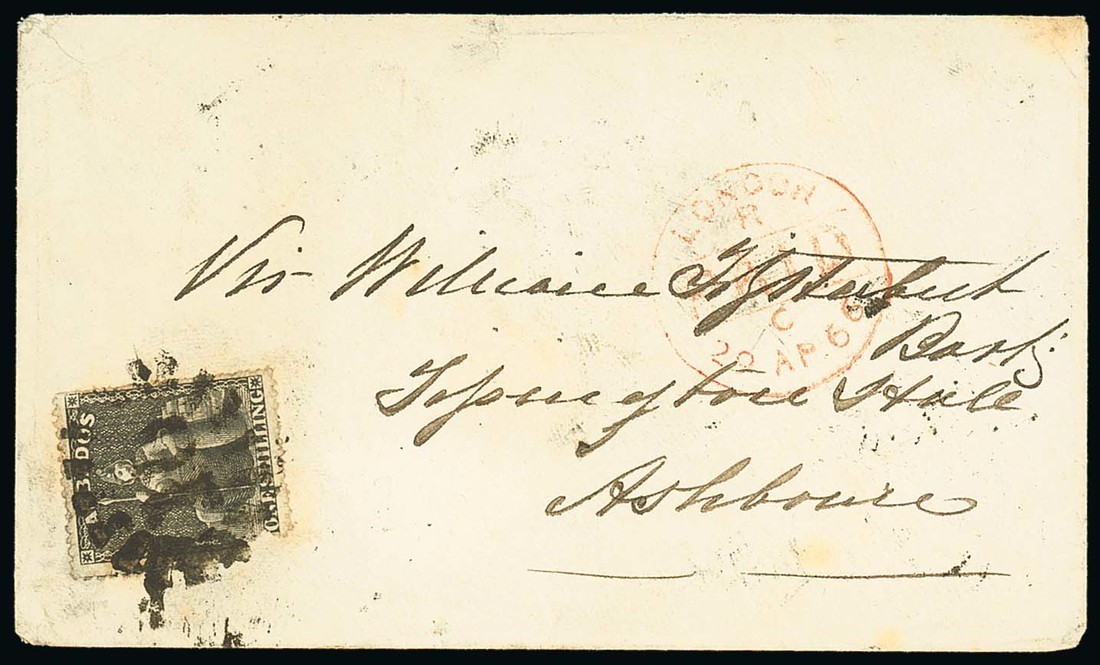 Sir William Fitzherbert
Bart:
Tissington Hall
Ashbourne
LONDON
R
PAID
C
AP 66
SHILLING